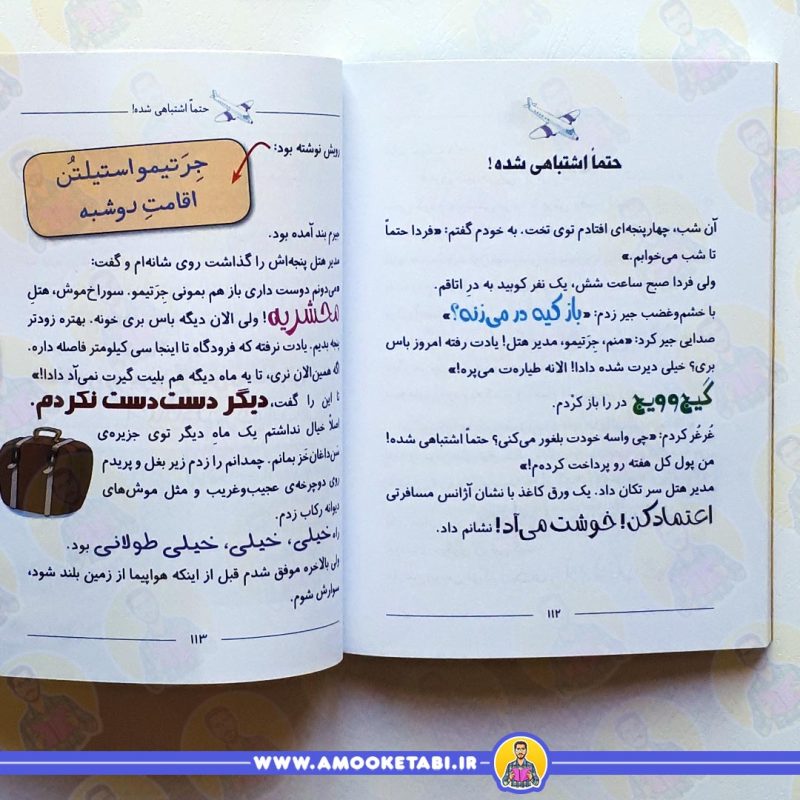 حتماً اشتباهی شده!
آن شب، چهارپنجه‌ای افتادم توی تخت. به خودم گفتم: «فردا حتماً
تا شب می‌خوابم.»
ولی فردا صبح ساعت شش، یک نفر کوبید به درِ اتاقم.
با خشم‌وغضب جیر زدم: «باز کیه در می‌زنه؟»
صدایی جیر کرد: «منم، جِرَتیمو، مدیر هتل! یادت رفته امروز باس
بری؟ خیلی دیرت شده دادا! الانه طیاره‌ت می‌پره!»
گیج‌وویج در را باز کردم.
غُرغُر کردم: «چی واسه خودت بلغور می‌کنی؟ حتماً اشتباهی شده!
من پول کل هفته رو پرداخت کرده‌م!»
مدیر هتل سر تکان داد. یک ورق کاغذ با نشان آژانس مسافرتی
اعتماد کن! خوشت می‌آد! نشانم داد.
۱۱۲
حتماً اشتباهی شده!
رویش نوشته بود:
جِرَتیمو استیلتُن
اقامتِ دوشبه
جیرم بند آمده بود.
مدیر هتل پنجه‌اش را گذاشت روی شانه‌ام و گفت:
«می‌دونم دوست داری باز هم بمونی جِرَتیمو. سوراخ‌موش، هتلِ
محشریه! ولی الان دیگه باس بری خونه. بهتره زودتر
پنجه بدیم. یادت نرفته که فرودگاه تا اینجا سی کیلومتر فاصله داره.
اگه همین‌الان نری، تا یه ماه دیگه هم بلیت گیرت نمی‌آد دادا!»
تا این را گفت، دیگر دست‌دست نکردم.
اصلاً خیال نداشتم یک ماهِ دیگر توی جزیره‌ی
شن‌داغان‌خَز بمانم. چمدانم را زدم زیر بغل و پریدم
روی دوچرخه‌ی عجیب‌وغریب و مثل موش‌های
دیوانه رکاب زدم.
راه خیلی، خیلی، خیلی طولانی بود.
ولی بالاخره موفق شدم قبل از اینکه هواپیما از زمین بلند شود،
سوارش شوم.
۱۱۳
WWW.AMOOKETABI.IR